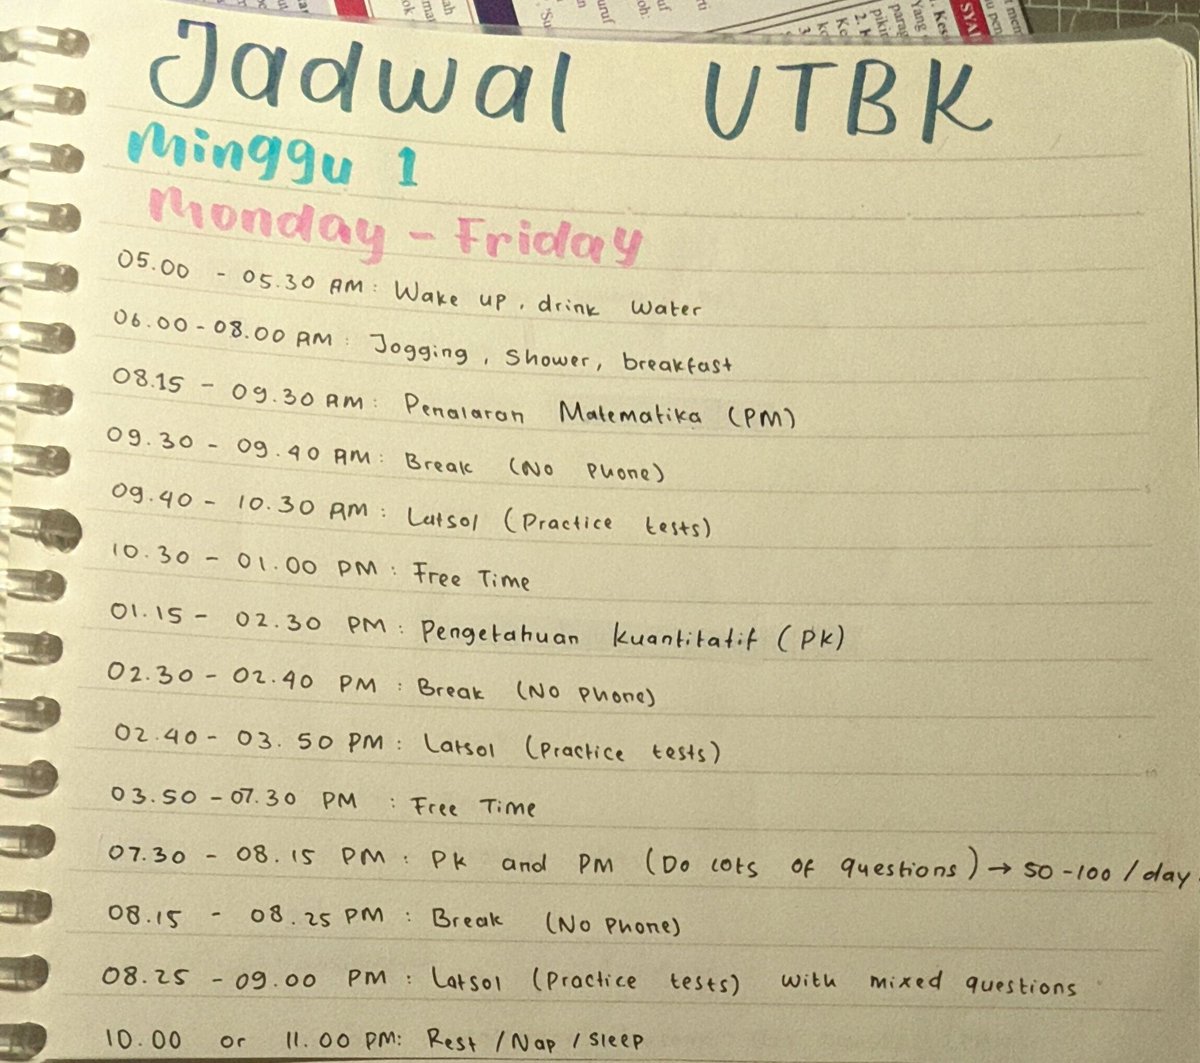 Jadwal UTBK
Minggu 1
Monday - Friday
05.00 - 05.30 AM: Wake up, drink water
06.00 - 08.00 AM: Jogging, Shower, breakfast
08.15 - 09.30 AM: Penalaran Matematika (PM)
09.30 - 09.40 AM: Break (No Phone)
09.40 - 10.30 AM: Latsol (Practice tests)
10.30 - 01.00 PM: Free Time
01.15 - 02.30 PM: Pengetahuan Kuantitatif (PK)
02.30 - 02.40 PM: Break (No Phone)
02.40 - 03.50 PM: Latsol (Practice tests)
03.50 - 07.30 PM: Free Time
07.30 - 08.15 PM: PK and PM (Do lots of questions) → 50-100/day.
08.15 - 08.25 PM: Break (No Phone)
08.25 - 09.00 PM: Latsol (Practice tests) with mixed questions
10.00 or 11.00 PM: Rest/Nap/Sleep